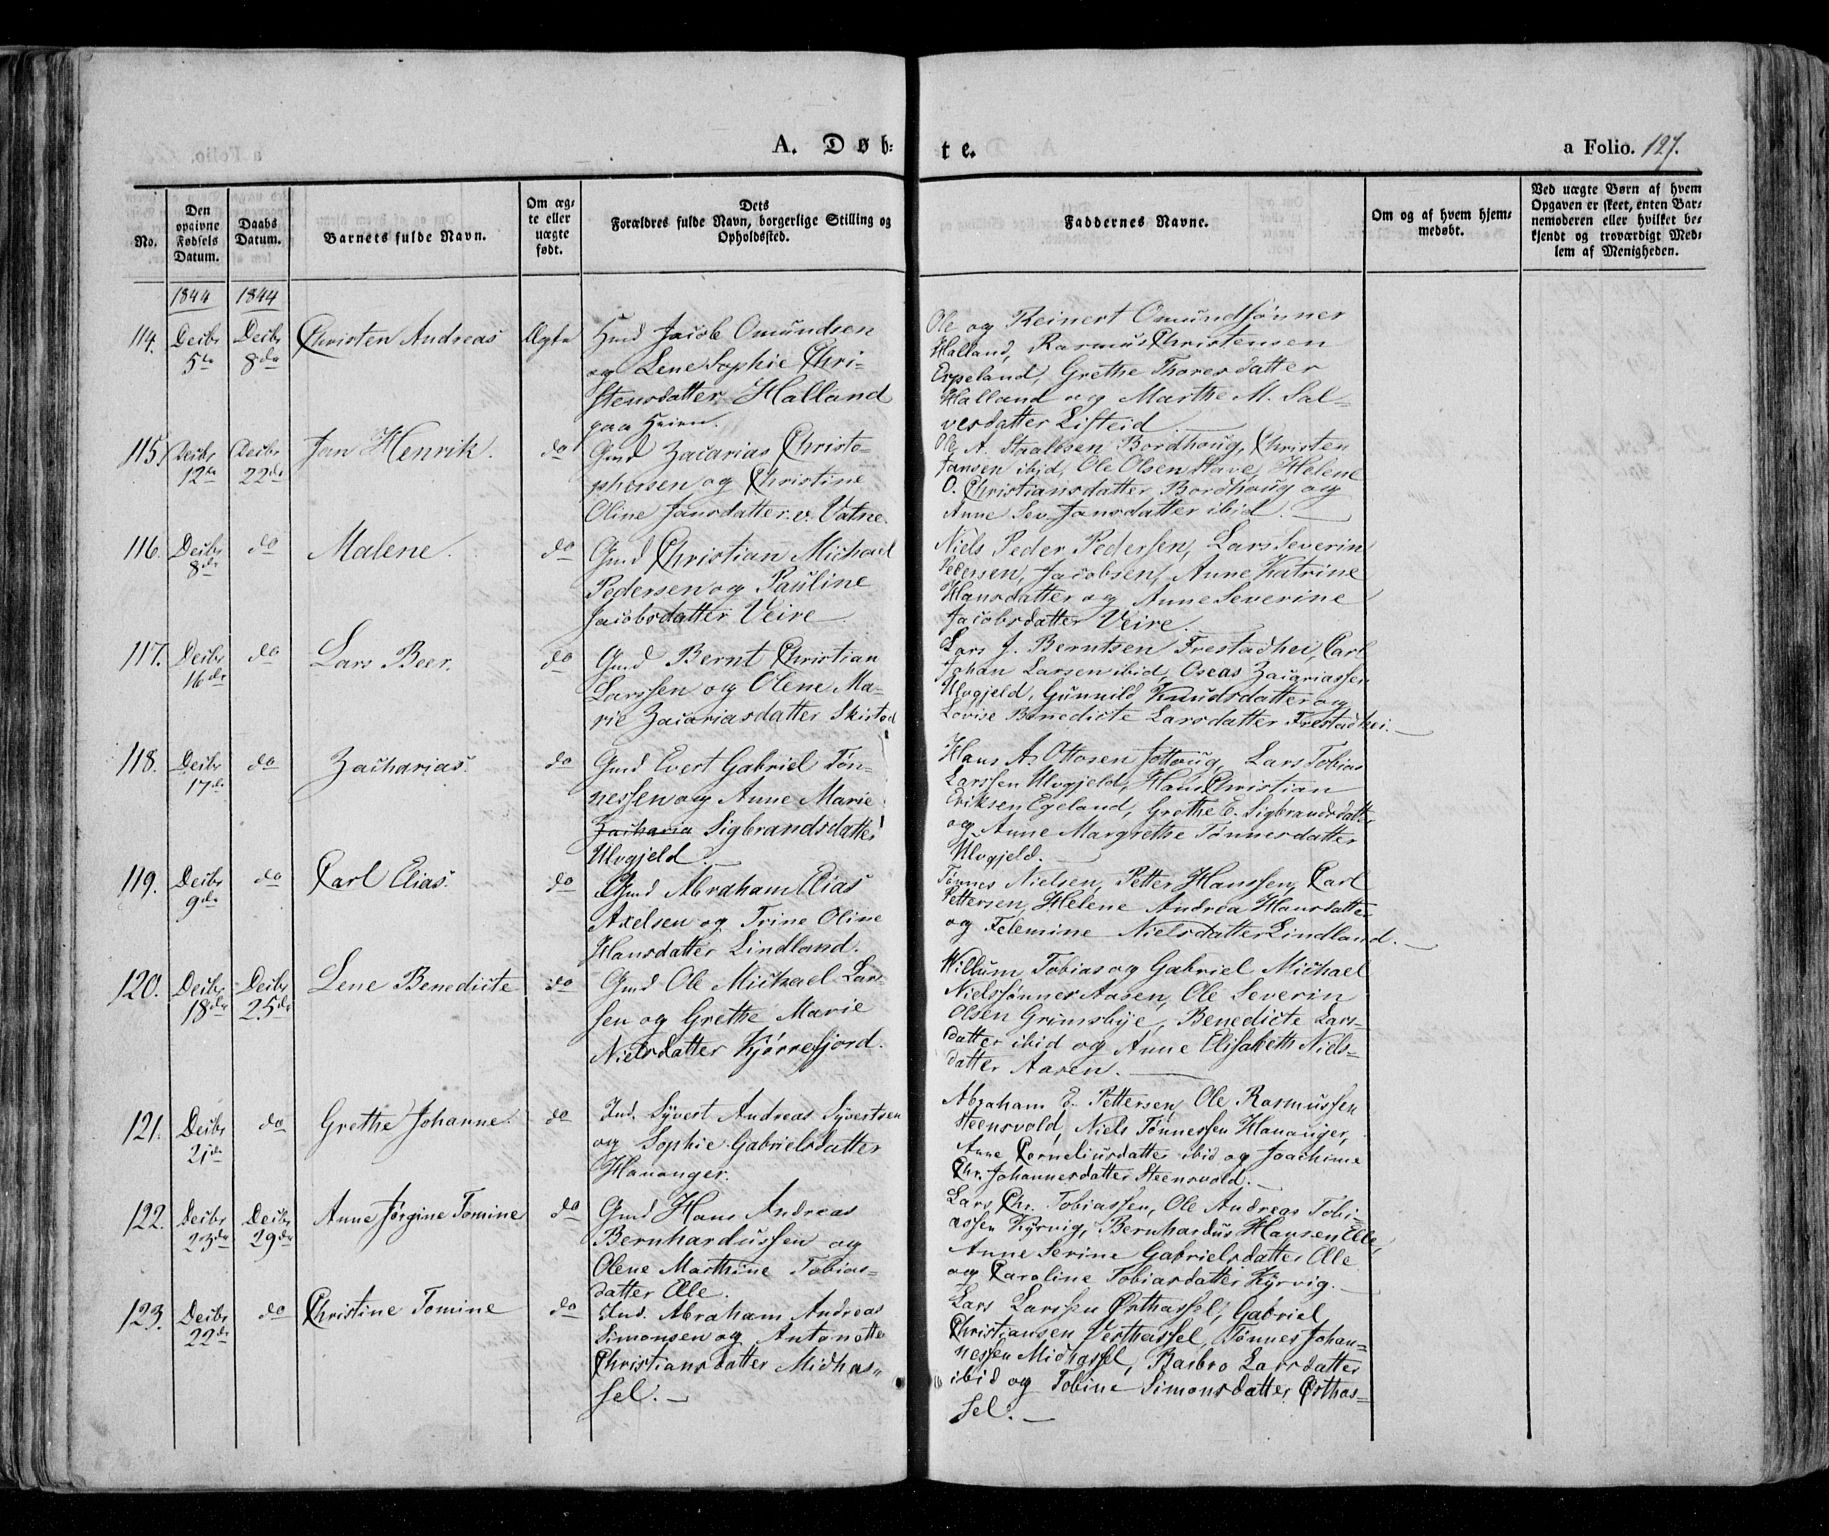 A. Døb-
te.
a Folio. 127.
No.
Den
opgivne
Fødsels
Datum.
Daabs
Datum.
Barnets fulde Navn.
Om æg-
te eller
uægte
født.
Dets
Forældres fulde Navn, borgerlige Stilling og
Opholdssted.
Faddernes Navne.
Om og af hvem hjem-
medøbt.
Ved uægte Børn af hvem
Opgaven er skeet, enten Bar-
nemoderen eller hvilket be-
kjendt og troværdigt Med-
lem af Menigheden.
1844 1844
114.
Decbr
5te
Decbr
8de
Christen Andreas
Ægte
Hmd Jacob Omundsen
og Lene Sophie Chri-
stensdatter Halland
paa Heien.
Ole og Reinert Omundsønner
Halland, Rasmus Christensen
Erpeland, Grethe Thores datter
Halland og Marthe M. Sal-
vesdatter Lifteid
115.
Decbr
12te
Decbr
22de
Jan Henrik.
do
Gmd Zacarias Christo-
phersen og Christine
Oline Jansdatter v. Vatne.
Ole A. Staalesen Bordhoug, Christen
Jansen ibid, Ole Olsen Stave, Helene
O. Christiansdatter Bordhoug og
Anne Sev. Jansdatter ibid.
116.
Decbr
8de
do
Malene.
do
Gmd Christian Michael
Pedersen og Pauline
Jacobsdatter Veire.
Niels Peder Pedersen, Lars Severin
Pedersen, Jacobsen, Anne Katrine
Hansdatter og Anne Severine
Jacobsdatter Veire.
117.
Decbr
16de
do
Lars Beer.
do
Gmd Bernt Christian
Larssen og Olene Ma-
rie Zacariasdatter Skistad
Lars J. Berntsen Frestadhei, Carl
Johan Larsen ibid, Oscas Zacariassen
Ulvgjeld, Gunnild Knudsdatter og
Lovise Benedicte Larsdatter Frestadhei.
118.
Decbr
17de
do
Zacharias.
do
Gmd Evert Gabriel Tøn-
nessen og Anne Marie
Zacharia Sigbrandsdatter
Ulvgjeld.
Hans A. Ottosen Jottoug, Lars Tobias
Larssen Ulvgjeld, Hans Christian
Eriksen Egeland, Grethe E. Sigbrandsdatter
og Anne Margrethe Tønnesdatter
Ulvgjeld.
119.
Decbr
9de
do
Carl Elias.
do
Gmd Abraham Elias
Axelsen og Trine Oline
Hansdatter Lindland.
Tønnes Nielsen, Petter Hanssen, Carl
Pettersen, Helene Andrea Hansdatter
og Felemine Nielsdatter Lindland.
120.
Decbr
18de
Decbr
25de
Lene Benedicte
do
Gmd Ole Michael Lars-
sen og Grethe Marie
Nielsdatter Kjørrefjord.
Willum Tobias og Gabriel Michael
Nielssønner Aasen, Ole Severin
Olsen Grimsbye, Benedicte Lars-
datter ibid og Anne Elisabeth Niels-
datter Aasen.
121.
Decbr
21de
do
Grethe Johanne.
do
Ind. Syvert Andreas Syvertsen
og Sophie Gabrielsdatter
Hananger.
Abraham E. Pettersen, Ole Rasmussen
Steensvold, Niels Tønnessen Hananger,
Anne Corneliusdatter ibid og Joachime
Chr. Johannesdatter Steensvold.
122.
Decbr
23de
Decbr
29de
Anne Jørgine Tomine
do
Gmd Hans Andreas
Bernhardussen og
Olene Marthine Tobias-
datter Ølle.
Lars Chr. Tobiassen, Ole Andreas Tobi-
assen Kyrvig, Bernhardus Hansen Ølle,
Anne Serine Gabrielsdatter Ølle
og Caroline Tobiasdatter Kyrvig.
123.
Decbr
22de
do
Christine Tomine
do
Ind. Abraham Andreas
Simonsen og Antonette
Christiansdatter Midhas-
sel.
Lars Larssen Østhassel, Gabriel
Christiansen Vesthassel, Tønnes Johan-
nessen Midhassel, Barbro Larsdatter
ibid og Tobine Simonsdatter Østhas-
sel.